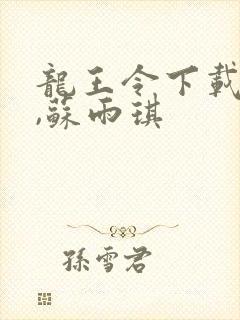 龍王令下載
,蘇雨琪
孫雪君